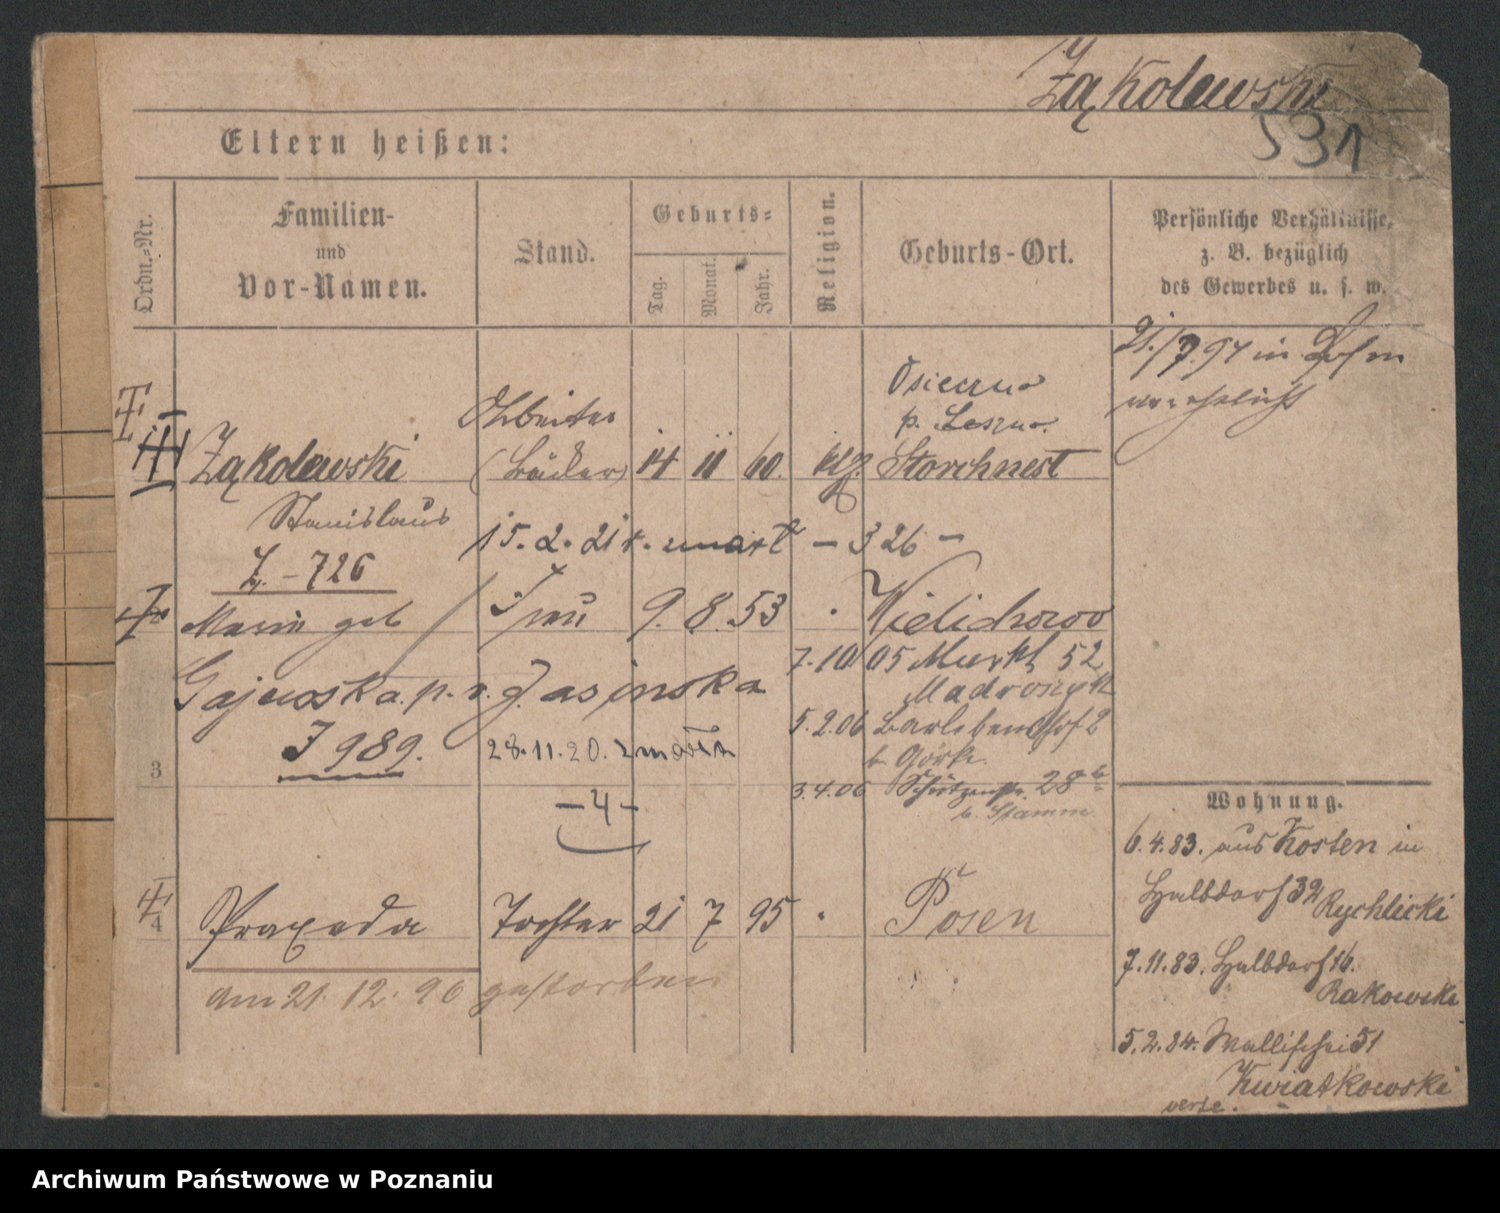 Żąkolewski
531
Eltern heißen:
Ordn.-Nr.
Familien-
und
Vor-Namen.
Stand.
Geburts-
Tag.
Monat.
Jahr.
Religion.
Geburts-Ort.
Persönliche Verhältnisse,
z. B. bezüglich
des Gewerbes u. s. w.
21./7.97 in
Osieczno
p. Leszno.
Arbeiter
Żąkolewski (Bäcker) 14 11 60. Storchnest
Stanislaus
15.2.21 r. umarł – 326 –
Ż. – 726
Marie geb Frau 9. 8. 53 Wielichowo
7.10.05 Markt 52
Gajewska. p. v. Jasinska
Madrongk
5.2.06 Bartlebenshof 2
J 989. 28.11.20. zmarła
b. Górk.
3
3.4.06 Schützenstr. 28b
– 4 –
b. Stamm
Wohnung.
6.4.83. aus Kosten in
Halbdorf 32 Rychlicki
4
Praxeda Tochter 21 7 95 Posen
7.11.83. Halbdorf 16.
am 21. 12. 96 gestorben
Rakowski
5.2.84. Wallischei 51
Kwiatkowski
verte.
Archiwum Państwowe w Poznaniu